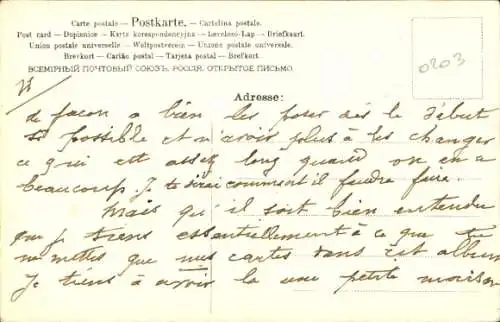 Carte postale — Postkarte. — Cartolina postale.
Post card — Dopisnice — Karta korespondencyjna — Levelezö-Lap — Briefkaart.
Union postale universelle — Weltpostverein — Unione postale universale.
Brevkort — Cartão postal — Tarjeta postal — Brefkort.
ВСЕМІРНЫЙ ПОЧТОВЫЙ СОЮЗЪ. РОССІЯ. ОТКРЫТОЕ ПИСЬМО.
0203
Adresse:
de façon a bien les poser dés le début
possible et n'avoir plus à les changer
ce qui est assez long quand on en a
beaucoup. Je te dirai comment il faudra faire.
Mais qu'il soit bien entendu
que je tiens essentiellement à ce que tu
ne mettes que mes cartes dans cet album
Je tiens à avoir là une petite maison